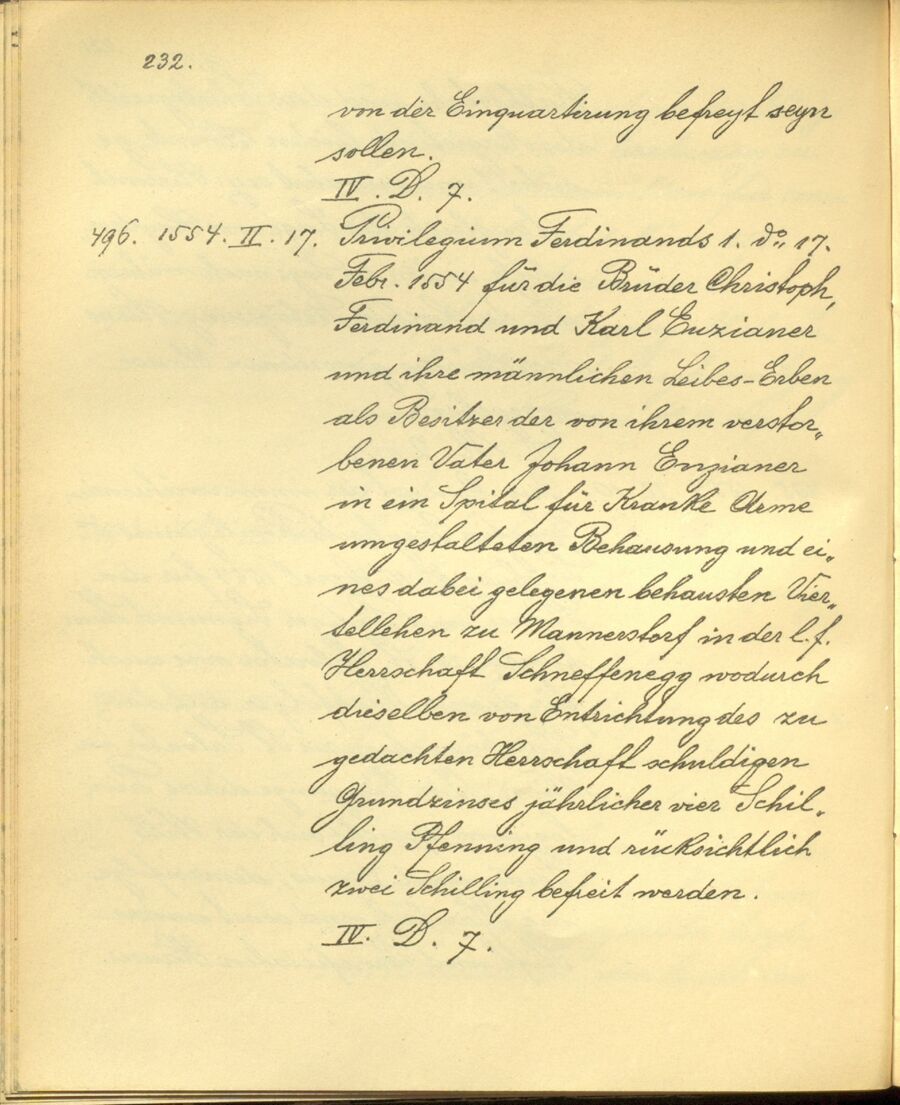 232.
von der Einquartirung befreyt seyn
sollen.
IV. D. 7.
496. 1554. II. 17. Privilegium Ferdinands 1. do„ 17.
Febr. 1554 für die Brüder Christoph,
Ferdinand und Karl Enzianer
und ihre männlichen Leibes-Erben
als Besitzer der von ihrem verstor„
benen Vater Johann Enzianer
in ein Spital für Kranke Arme
umgestalteten Behausung und ei„
nes dabei gelegenen behausten Vier„
tellehen zu Mannerstorf in der l. f.
Herrschaft Schneffenegg wodurch
dieselben von Entrichtung des zu
gedachten Herrschaft schuldigen
Grundzinses jährlicher vier Schil„
ling Pfenning und rücksichtlich
zwei Schilling befreit werden.
IV. D. 7.